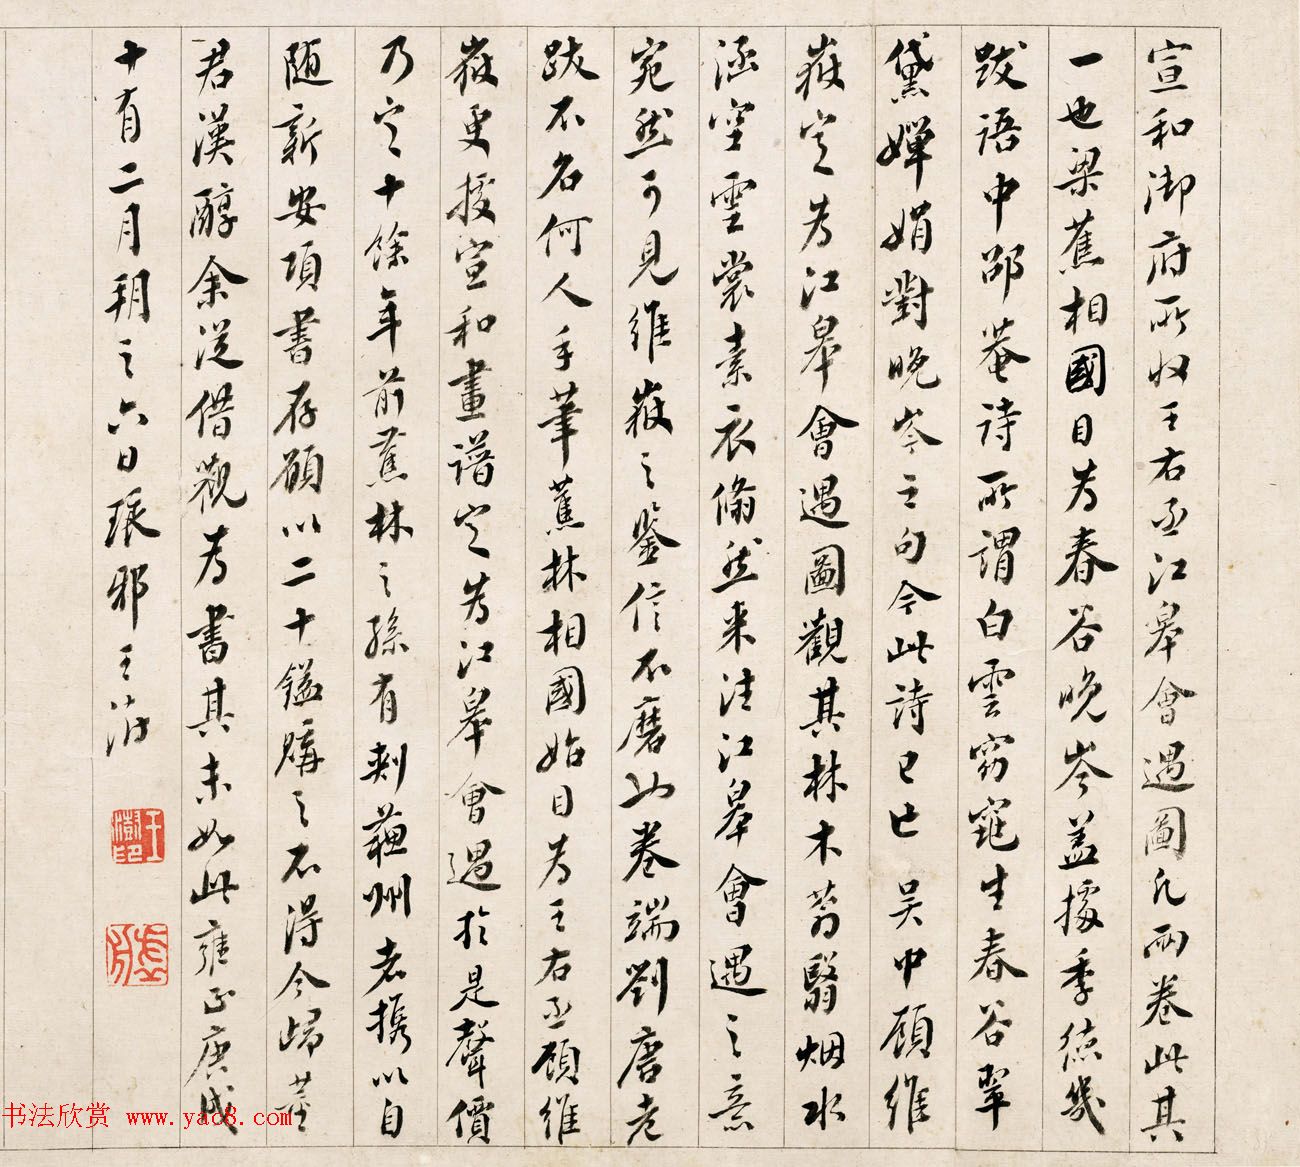 宣和御府所收王右丞江皋會遇圖凡兩卷此其
一也梁蕉相國目为春谷晚岑盖據季德幾
跋語中邵菴詩所謂白雲窈窕生春谷翠
黛嬋娟對晚岑之句今此詩已亡吴中顾維
嶽定为江皋會遇圖觀其林木蓊翳烟水
涵空雲裳素衣翛然来往江皋會遇之意
宛然可見維嶽之鉴信不磨也卷端劉唐老
跋不名何人手筆蕉林相國始目为王右丞顾維
嶽更援宣和畫譜定为江皋會遇於是聲價
乃定十餘年前蕉林之孫有刺蘇州者携以自
随新安項書存顾以二十鎰購之不得今歸董
君漢醇余從借觀为書其末如此雍正庚戌
十有二月朔之六日琅邪王澍
王澍印
虚舟
书法欣赏 www.yac8.com